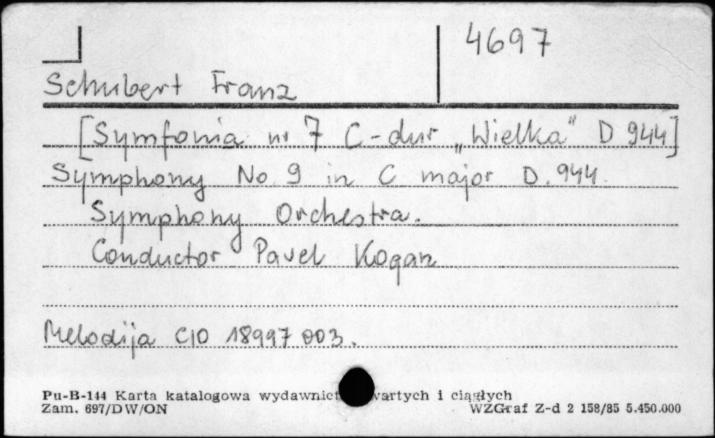 4697
Schubert Franz
[Symfonia nr 7 C-dur „Wielka" D 944]
Symphony No 9 in C major D. 944.
Symphony Orchestra.
Conductor Pavel Kogan
Melodija C10 18997 003.
Pu-B-144 Karta katalogowa wydawnict wartych i ciągłych
Zam. 697/DW/ON WZGraf Z-d 2 158/85 5.450.000